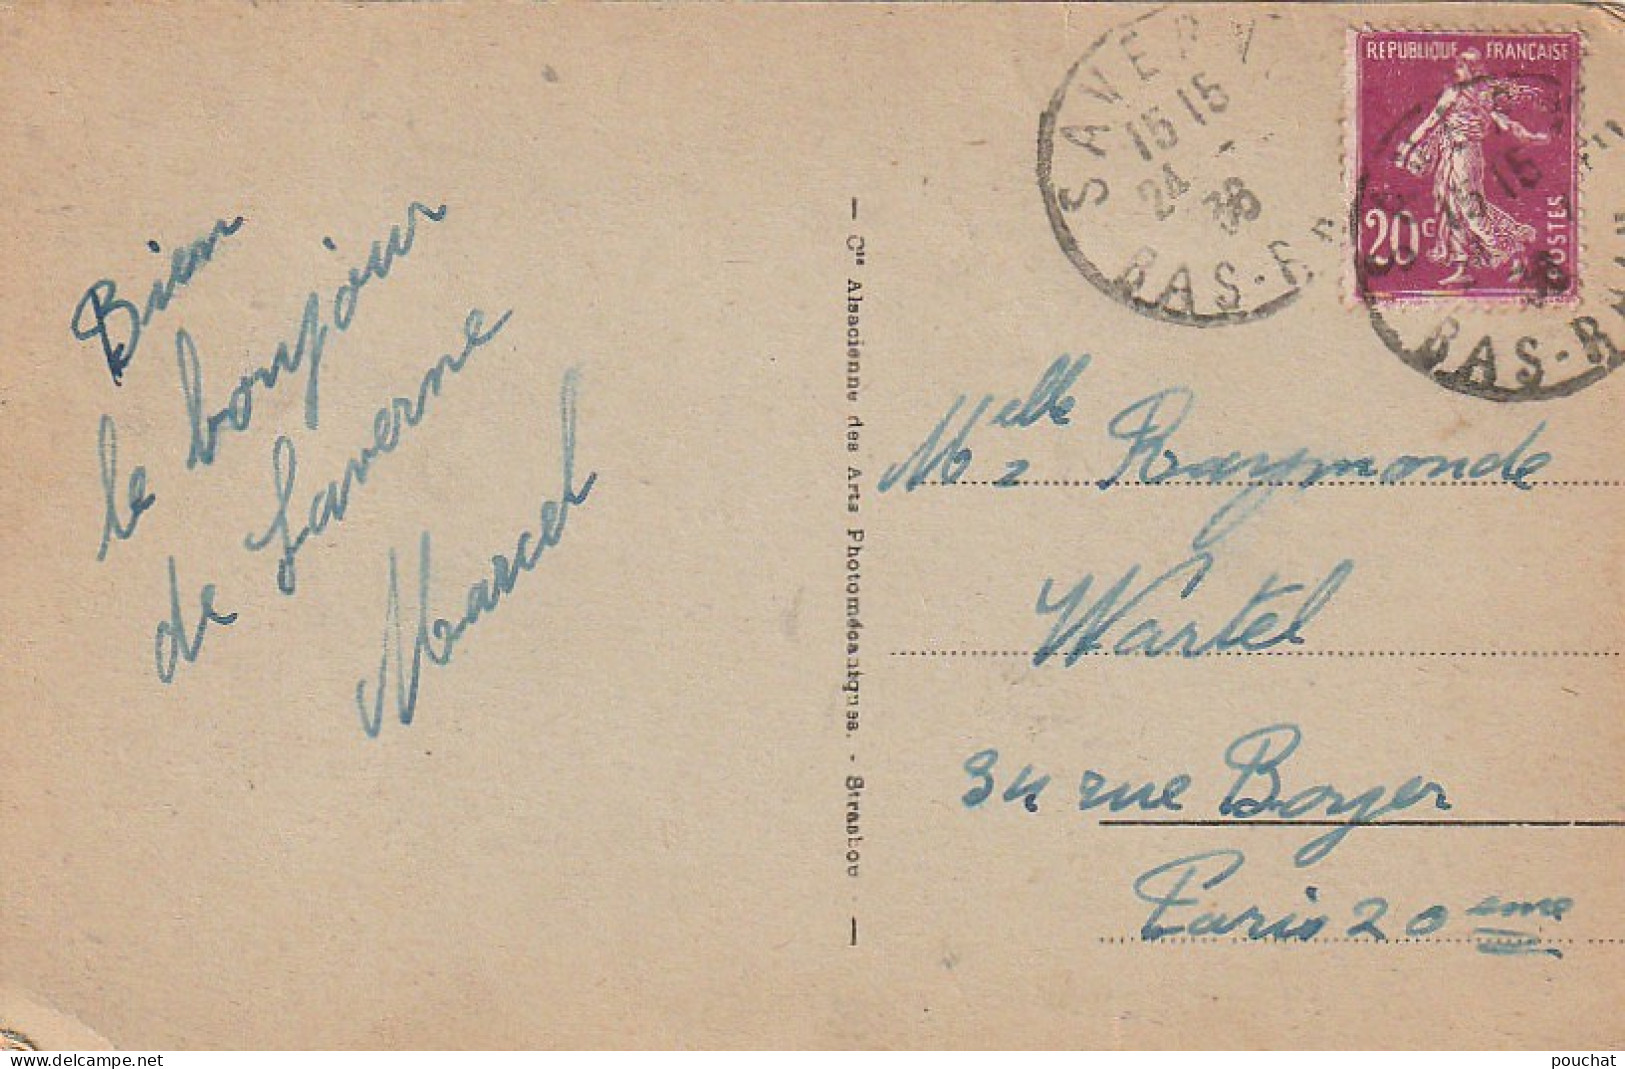 Bien
le bonjour
de Saverne
Marcel
— Cie Alsacienne des Arts Photomécaniques. - Strasbou —
SAVERN
15 15
24 - 36
BAS-R
REPUBLIQUE FRANCAISE
20c
POSTES
15 15
36
BAS-R
Melle Raymonde
Wartel
34 rue Boyer
Paris 20 eme
pouchat